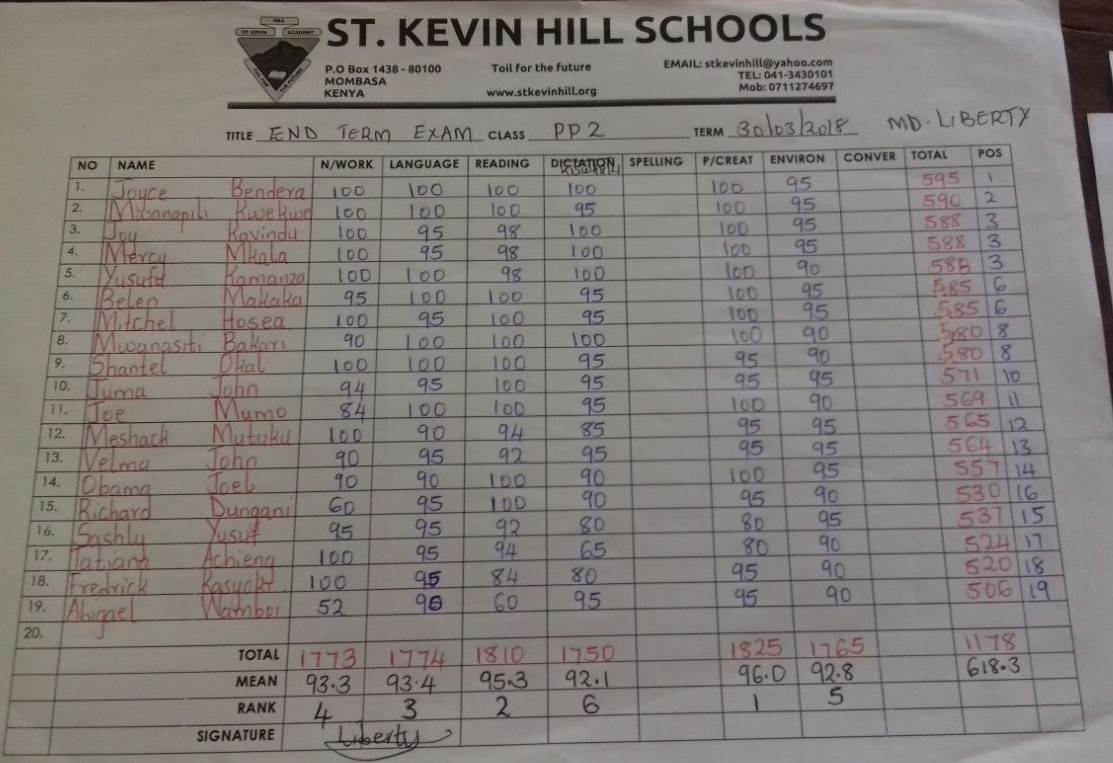 HILL
ST. KEVIN ACADEMY
TOIL FOR THE FUTURE
ST. KEVIN HILL SCHOOLS
P.O Box 1438 - 80100 Toil for the future EMAIL: stkevinhill@yahoo.com
MOMBASA TEL: 041-3430101
KENYA www.stkevinhill.org Mob: 0711274697
TITLE END TERM EXAM CLASS PP2 TERM 30/03/2018 MD. LIBERTY
NO NAME N/WORK LANGUAGE READING DICTATION KISWAHILI SPELLING P/CREAT ENVIRON CONVER TOTAL POS
1. Joyce Bendera 100 100 100 100 100 95 595 1
2. Mwanapili Kwekwe 100 100 100 95 100 95 590 2
3. Joy Kavindu 100 95 98 100 100 95 588 3
4. Mercy Mkala 100 95 98 100 100 95 588 3
5. Yusufu Kamanza 100 100 98 100 100 90 588 3
6. Belen Makaka 95 100 100 95 100 95 585 6
7. Mitchel Hosea 100 95 100 95 100 95 585 6
8. Mwanasiti Bakari 90 100 100 100 100 90 580 8
9. Shantel Okal 100 100 100 95 95 90 580 8
10. Juma John 94 95 100 95 95 95 571 10
11. Joe Mumo 84 100 100 95 100 90 569 11
12. Meshack Mutuku 100 90 94 85 95 95 565 12
13. Velma John 90 95 92 95 95 95 564 13
14. Obama Joel 90 90 100 90 100 95 557 14
15. Richard Dungani 60 95 100 90 95 90 530 16
16. Sashly Yusuf 95 95 92 80 80 95 537 15
17. Tatiana Achieng 100 95 94 65 80 90 524 17
18. Fredrick Kasyoki 100 95 84 80 95 90 520 18
19. Abigael Wamboi 52 90 60 95 95 90 506 19
20.
TOTAL 1773 1774 1810 1750 1825 1765 1178
MEAN 93.3 93.4 95.3 92.1 96.0 92.8 618.3
RANK 4 3 2 6 1 5
SIGNATURE Liberty